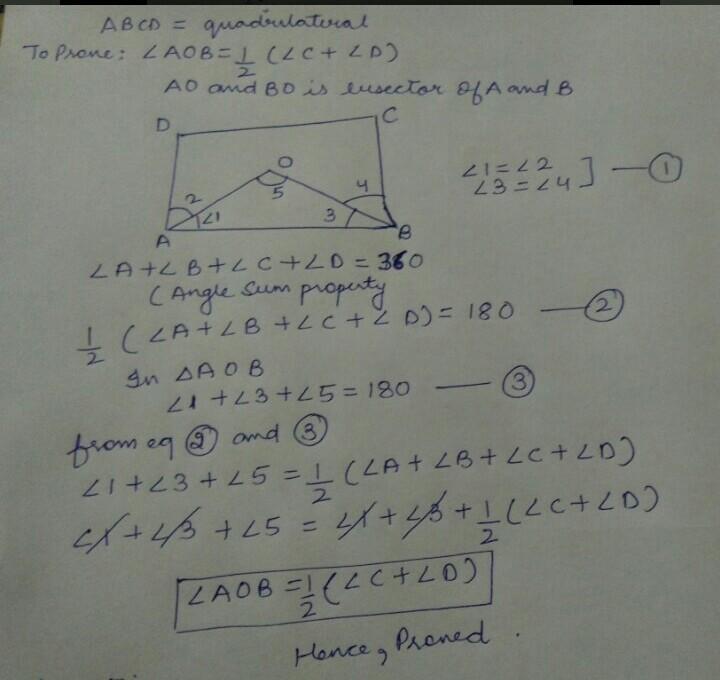 ABCD = quadrilateral
To Prove: ∠AOB = 1/2 (∠C + ∠D)
AO and BO is bisector of A and B
D C
O
2 4
5
∠1 3
A B
∠1 = ∠2
∠3 = ∠4 ] — ①
∠A + ∠B + ∠C + ∠D = 360
(Angle sum property
1/2 (∠A + ∠B + ∠C + ∠D) = 180 — ②
In △AOB
∠1 + ∠3 + ∠5 = 180 — ③
from eq ② and ③
∠1 + ∠3 + ∠5 = 1/2 (∠A + ∠B + ∠C + ∠D)
∠1 + ∠3 + ∠5 = ∠1 + ∠3 + 1/2 (∠C + ∠D)
∠AOB = 1/2 (∠C + ∠D)
Hence, Proved .